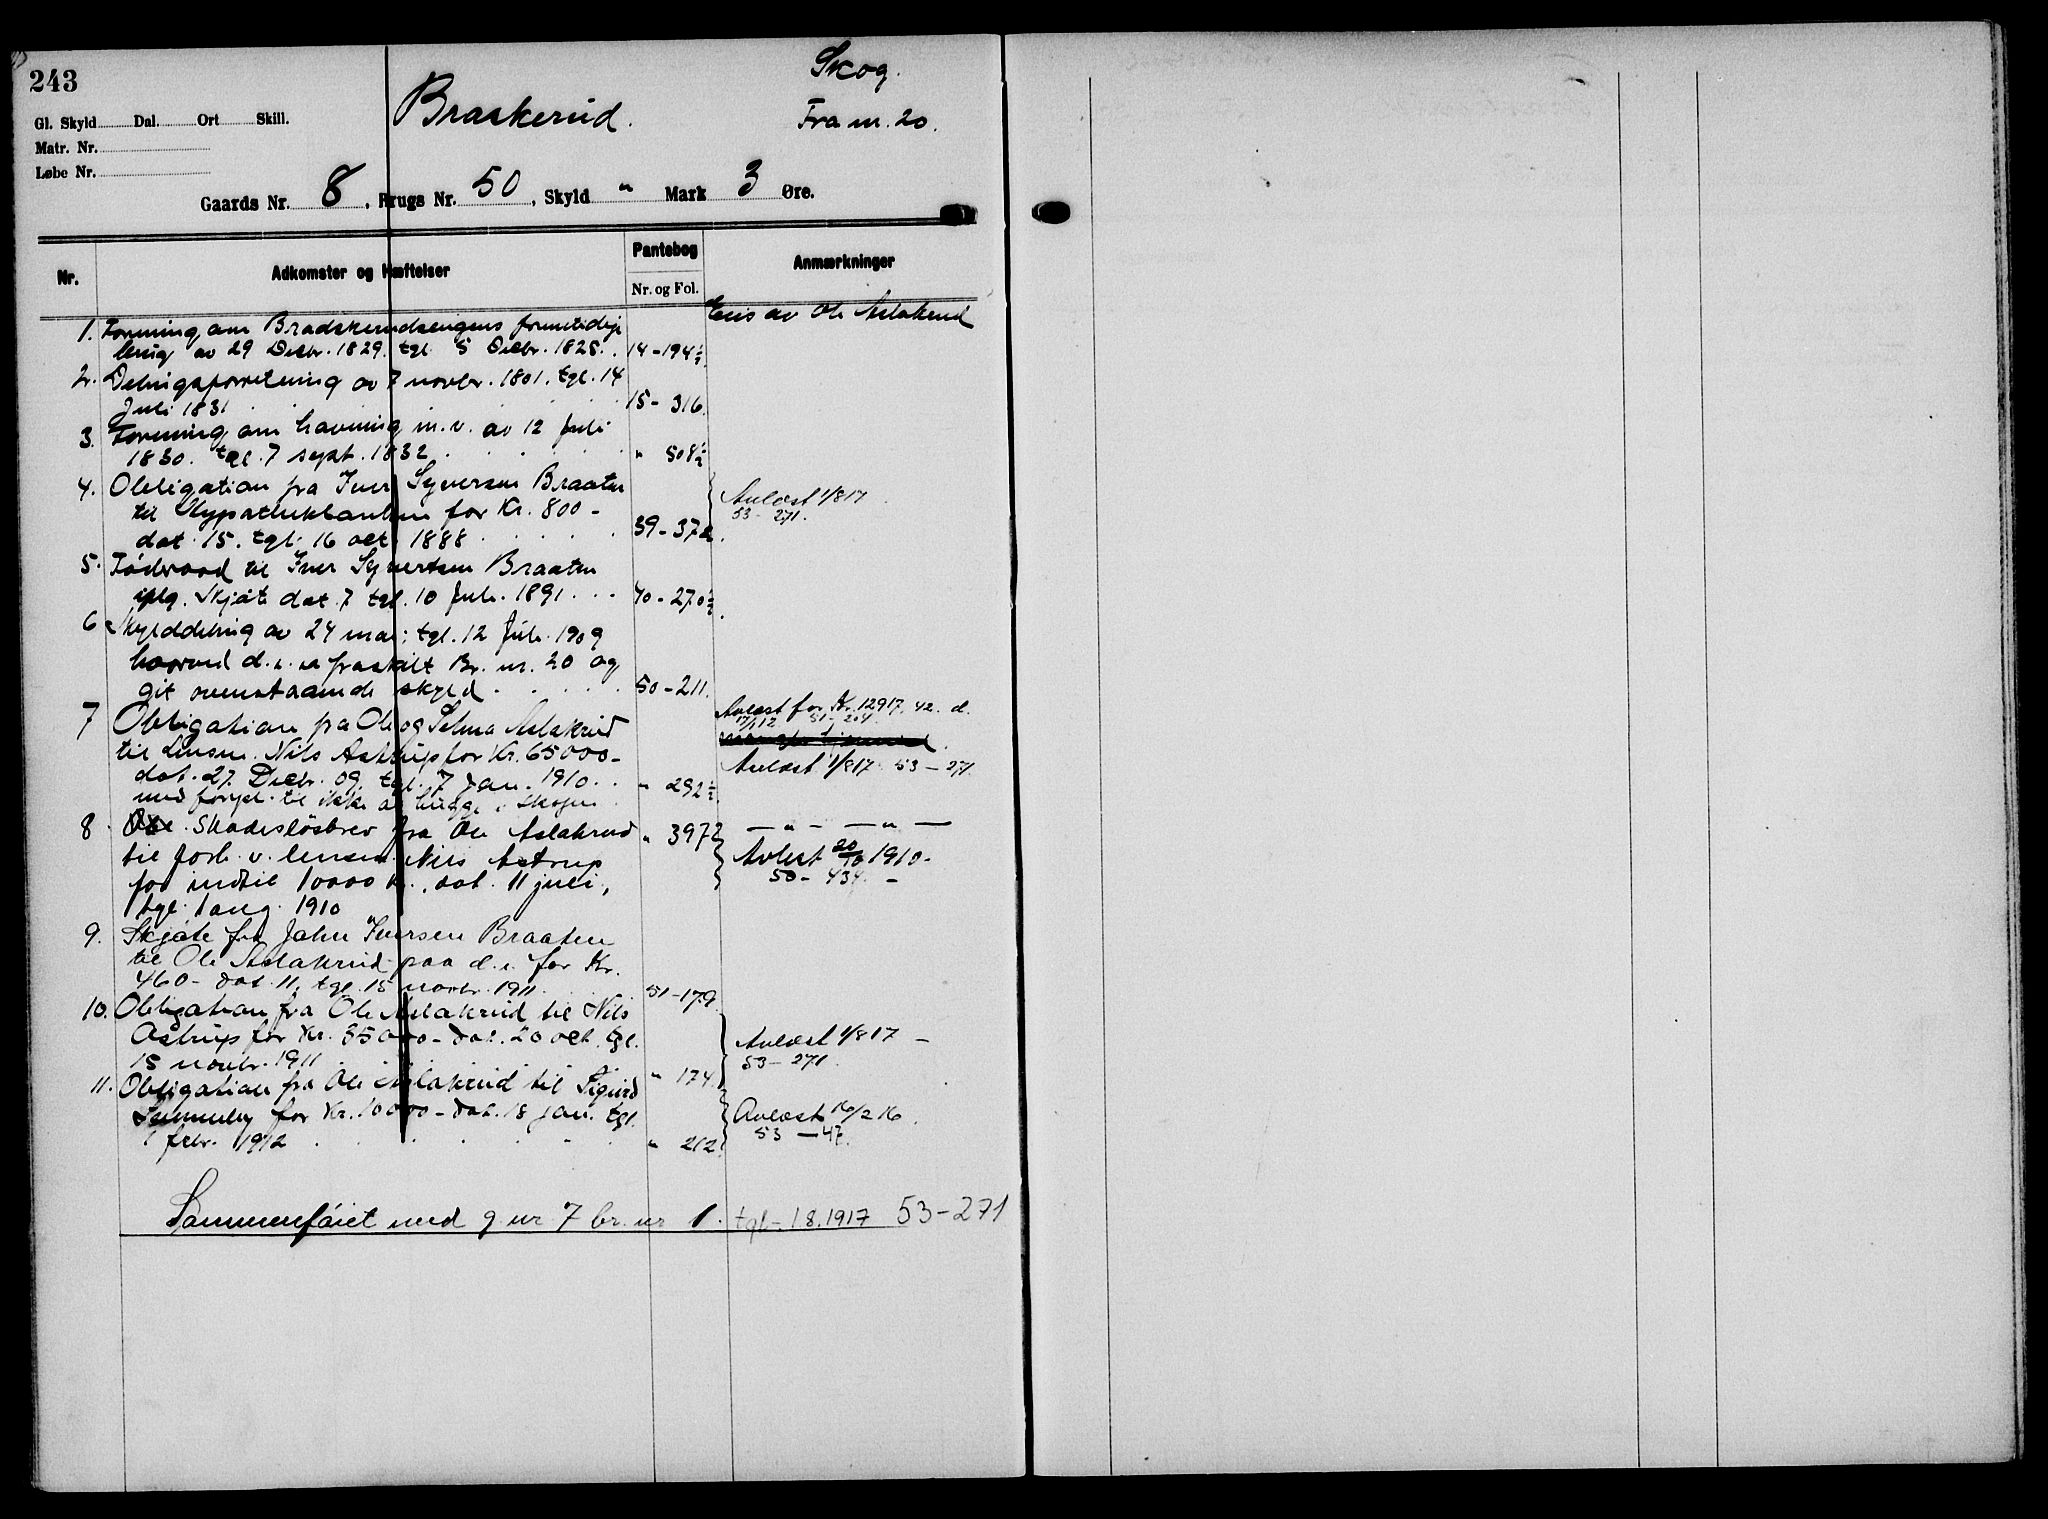 243
Skog.
Braskerud.
Fra nr. 20.
Gl. Skyld Dal. Ort Skill.
Matr. Nr.
Løbe Nr.
Gaards Nr. 8, Brugs Nr. 50, Skyld " Mark 3 Øre.
Nr. Adkomster og Hæftelser Pantebog Anmærkninger
Nr. og Fol.
Eies av Ole Aslakrud
1. Forening om Bradskerudsengens fremtidige
av 29 Decbr. 1829. tgl. 5 Decbr. 1828. 14-194½
2. Delingsforretning av 7 novbr. 1801. tgl. 14
Juli 1831 15-316.
3. Forening om havning m.v. av 12 Juli
1830. tgl. 7 sept. 1832 " 508½
4. Obligation fra Iver Syversen Braaten
til Hypotekbanken for Kr. 800-
dat. 15. tgl. 16 oct. 1888 39-372
Avlæst 1/8 17
53-271.
5. Føderaad til Iver Syvertsen Braaten
iflg. Skjøte dat. 7 tgl. 10 Juli 1891 40-270½
6 Skylddeling av 24 mai; tgl. 12 Juli 1909
hvorved d.e. er fraskilt Br. nr. 20 og
git ovenstaaende skyld 50-211.
7 Obligation fra Ole og Selma Aslakrud
til Lensm. Nils Astrup for Kr. 65000-
dat. 27. Decbr. 09. tgl. 7 Jan. 1910 " 292½
med forpl. til ikke at hugge i skogen
Avlæst for Kr. 12917.42. d.
17/1 12. 51-204.
Avlæst 1/8 17 53-271.
8 Skadesløsbrev fra Ole Aslakrud " 397
til forh. v. lensm. Nils Astrup
for indtil 10000 kr., dat. 11 juli,
tgl. 1 aug. 1910
— " — — " —
Avlæst 20/10 1910-
50-434. -
9. Skjøte fra John Iversen Braaten
til Ole Aslakrud paa d.e. for Kr.
460- dat. 11, tgl. 15 novbr. 1911 51-179
10. Obligation fra Ole Aslakrud til Nils
Astrup for Kr. 35000- dat. 20 oct. tgl.
15 novbr. 1911 " 174.
Avlæst 1/8 17 -
53-271.
11. Obligation fra Ole Aslakrud til Sigurd
for Kr. 10000- dat. 18 jan. tgl.
1 febr. 1912 " 212.
Avlæst 16/2 16
53-47.
Sammenføiet med g. nr 7 br. nr 1. tgl. 1.8.1917 53-271